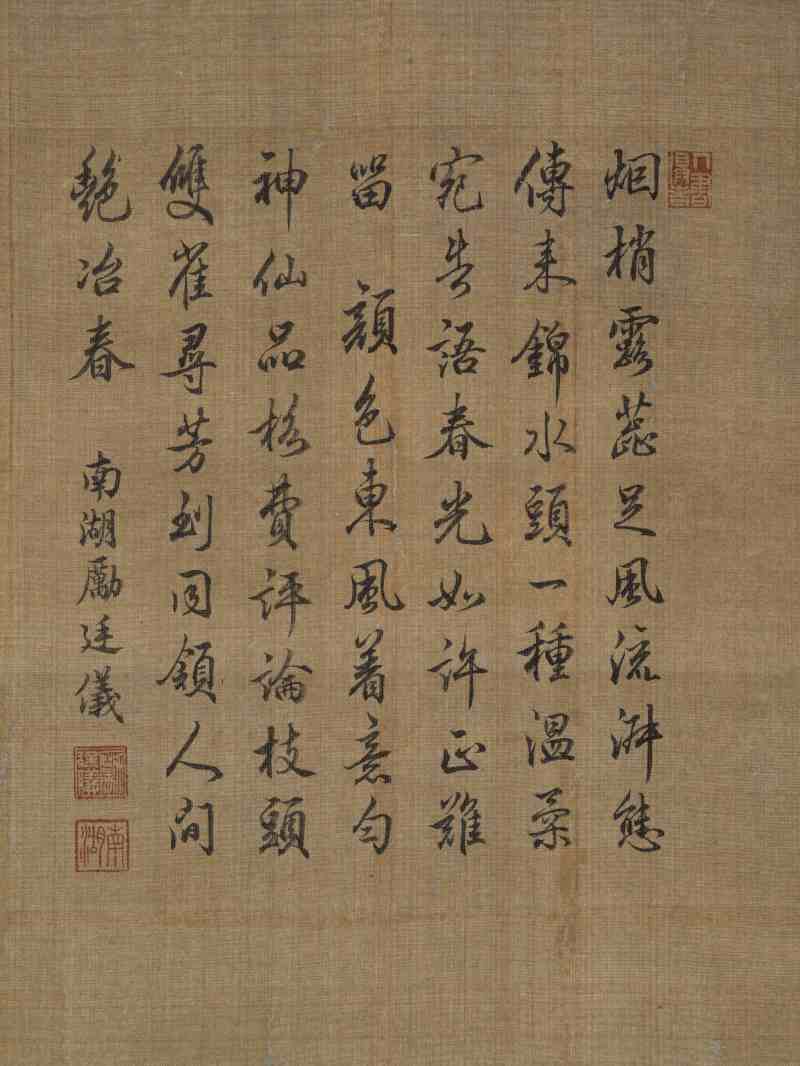 烟梢露蕊足風流態
傳来錦水頭一種温柔
宛告語春光如許正難
畱 顏色東風着意勻
神仙品格費評論枝頭
雙雀尋芳到同領人間
艶冶春 南湖勵廷儀
南湖